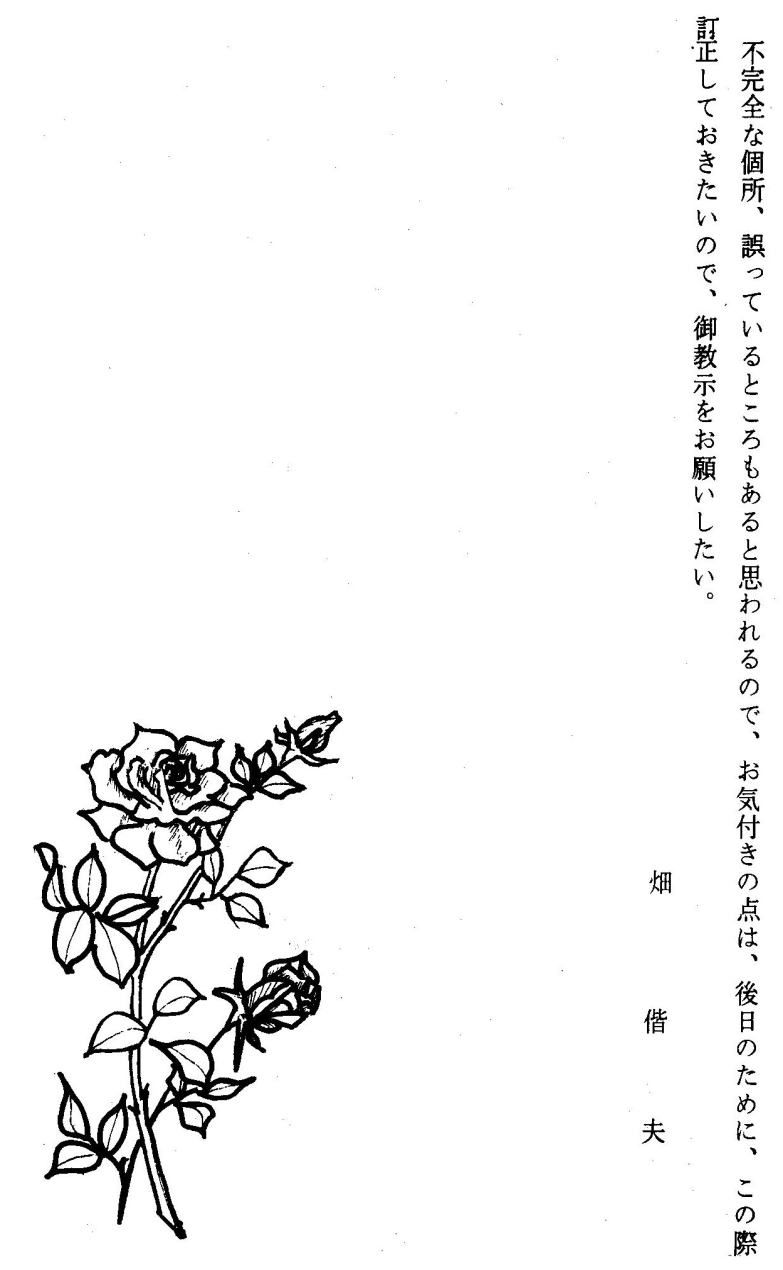 不完全な個所、誤っているところもあると思われるので、お気付きの点は、後日のために、この際
訂正しておきたいので、御教示をお願いしたい。
畑 偕夫